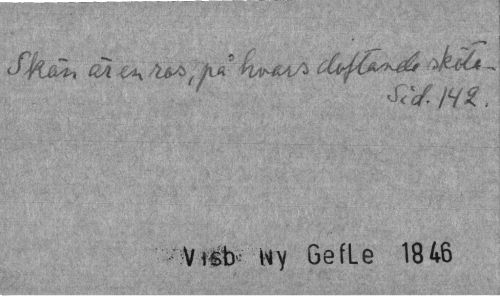 Skön är en ros, på hvars doftande sköte_
Sid. 142.
Visb Ny Gefle 1846